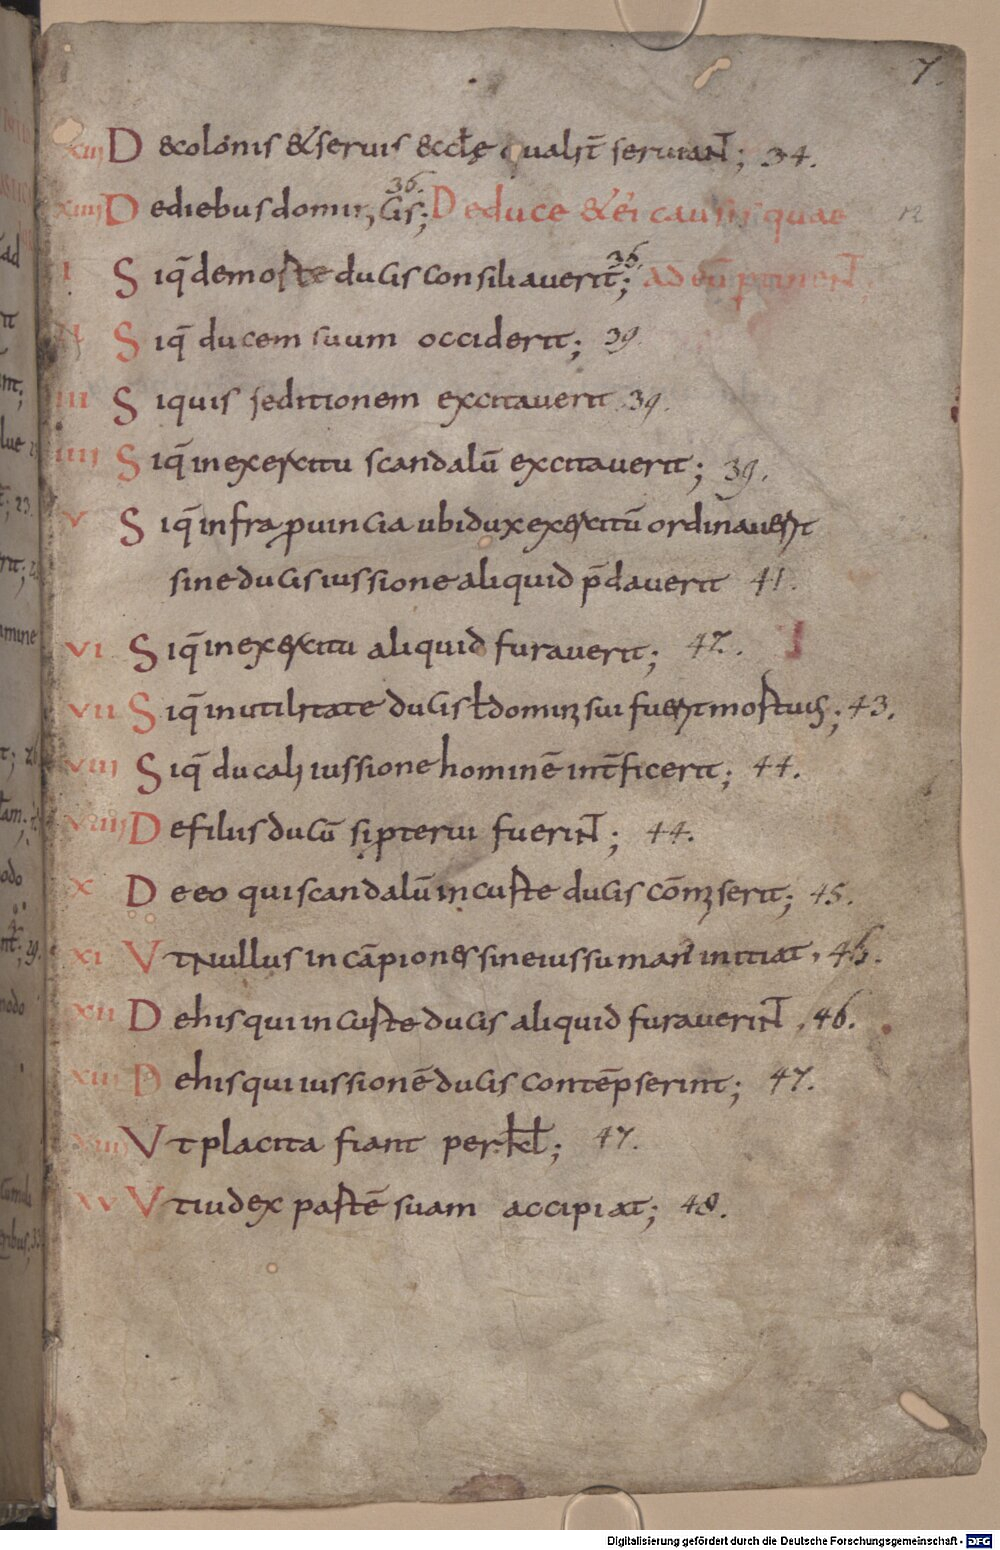 7.
xiii D & colonis & servis eccłę qualit̄ serviant; 34.
xiiii D ediebus dominicis; 36. De duce & ei causis quae 12
I S iq̄ de morte ducis consiliaverit; 36. ad eū ptinent;
II S iq̄ ducem suum occiderit; 39
III S iquis seditionem excitaverit 39.
IIII S iq̄ in exercitu scandalū excitaverit; 39.
V S iq̄ infra puincia ubi dux exercitū ordinaverit
sine ducis iussione aliquid p̄daverit 41.
VI S iq̄ in exercitu aliquid furaverit; 42.
VII S iq̄ in utilitate ducis ł domini sui fuerit mortuus; 43.
VIII S iq̄ ducali iussione hominē int̄ficerit; 44.
VIIII D e filiis ducū si pterui fuerint; 44.
X D e eo qui scandalū in curte ducis cōmiserit; 45.
XI V t nullus in cāpiones sine iussu man initiat, 46.
XII D e his qui in curte ducis aliquid furaverint, 46.
XIII D e his qui iussionē ducis contēpserint; 47.
XIIII V t placita fiant per kł; 47.
XV V t iudex partē suam accipiat; 48.
Digitalisierung gefördert durch die Deutsche Forschungsgemeinschaft - DFG